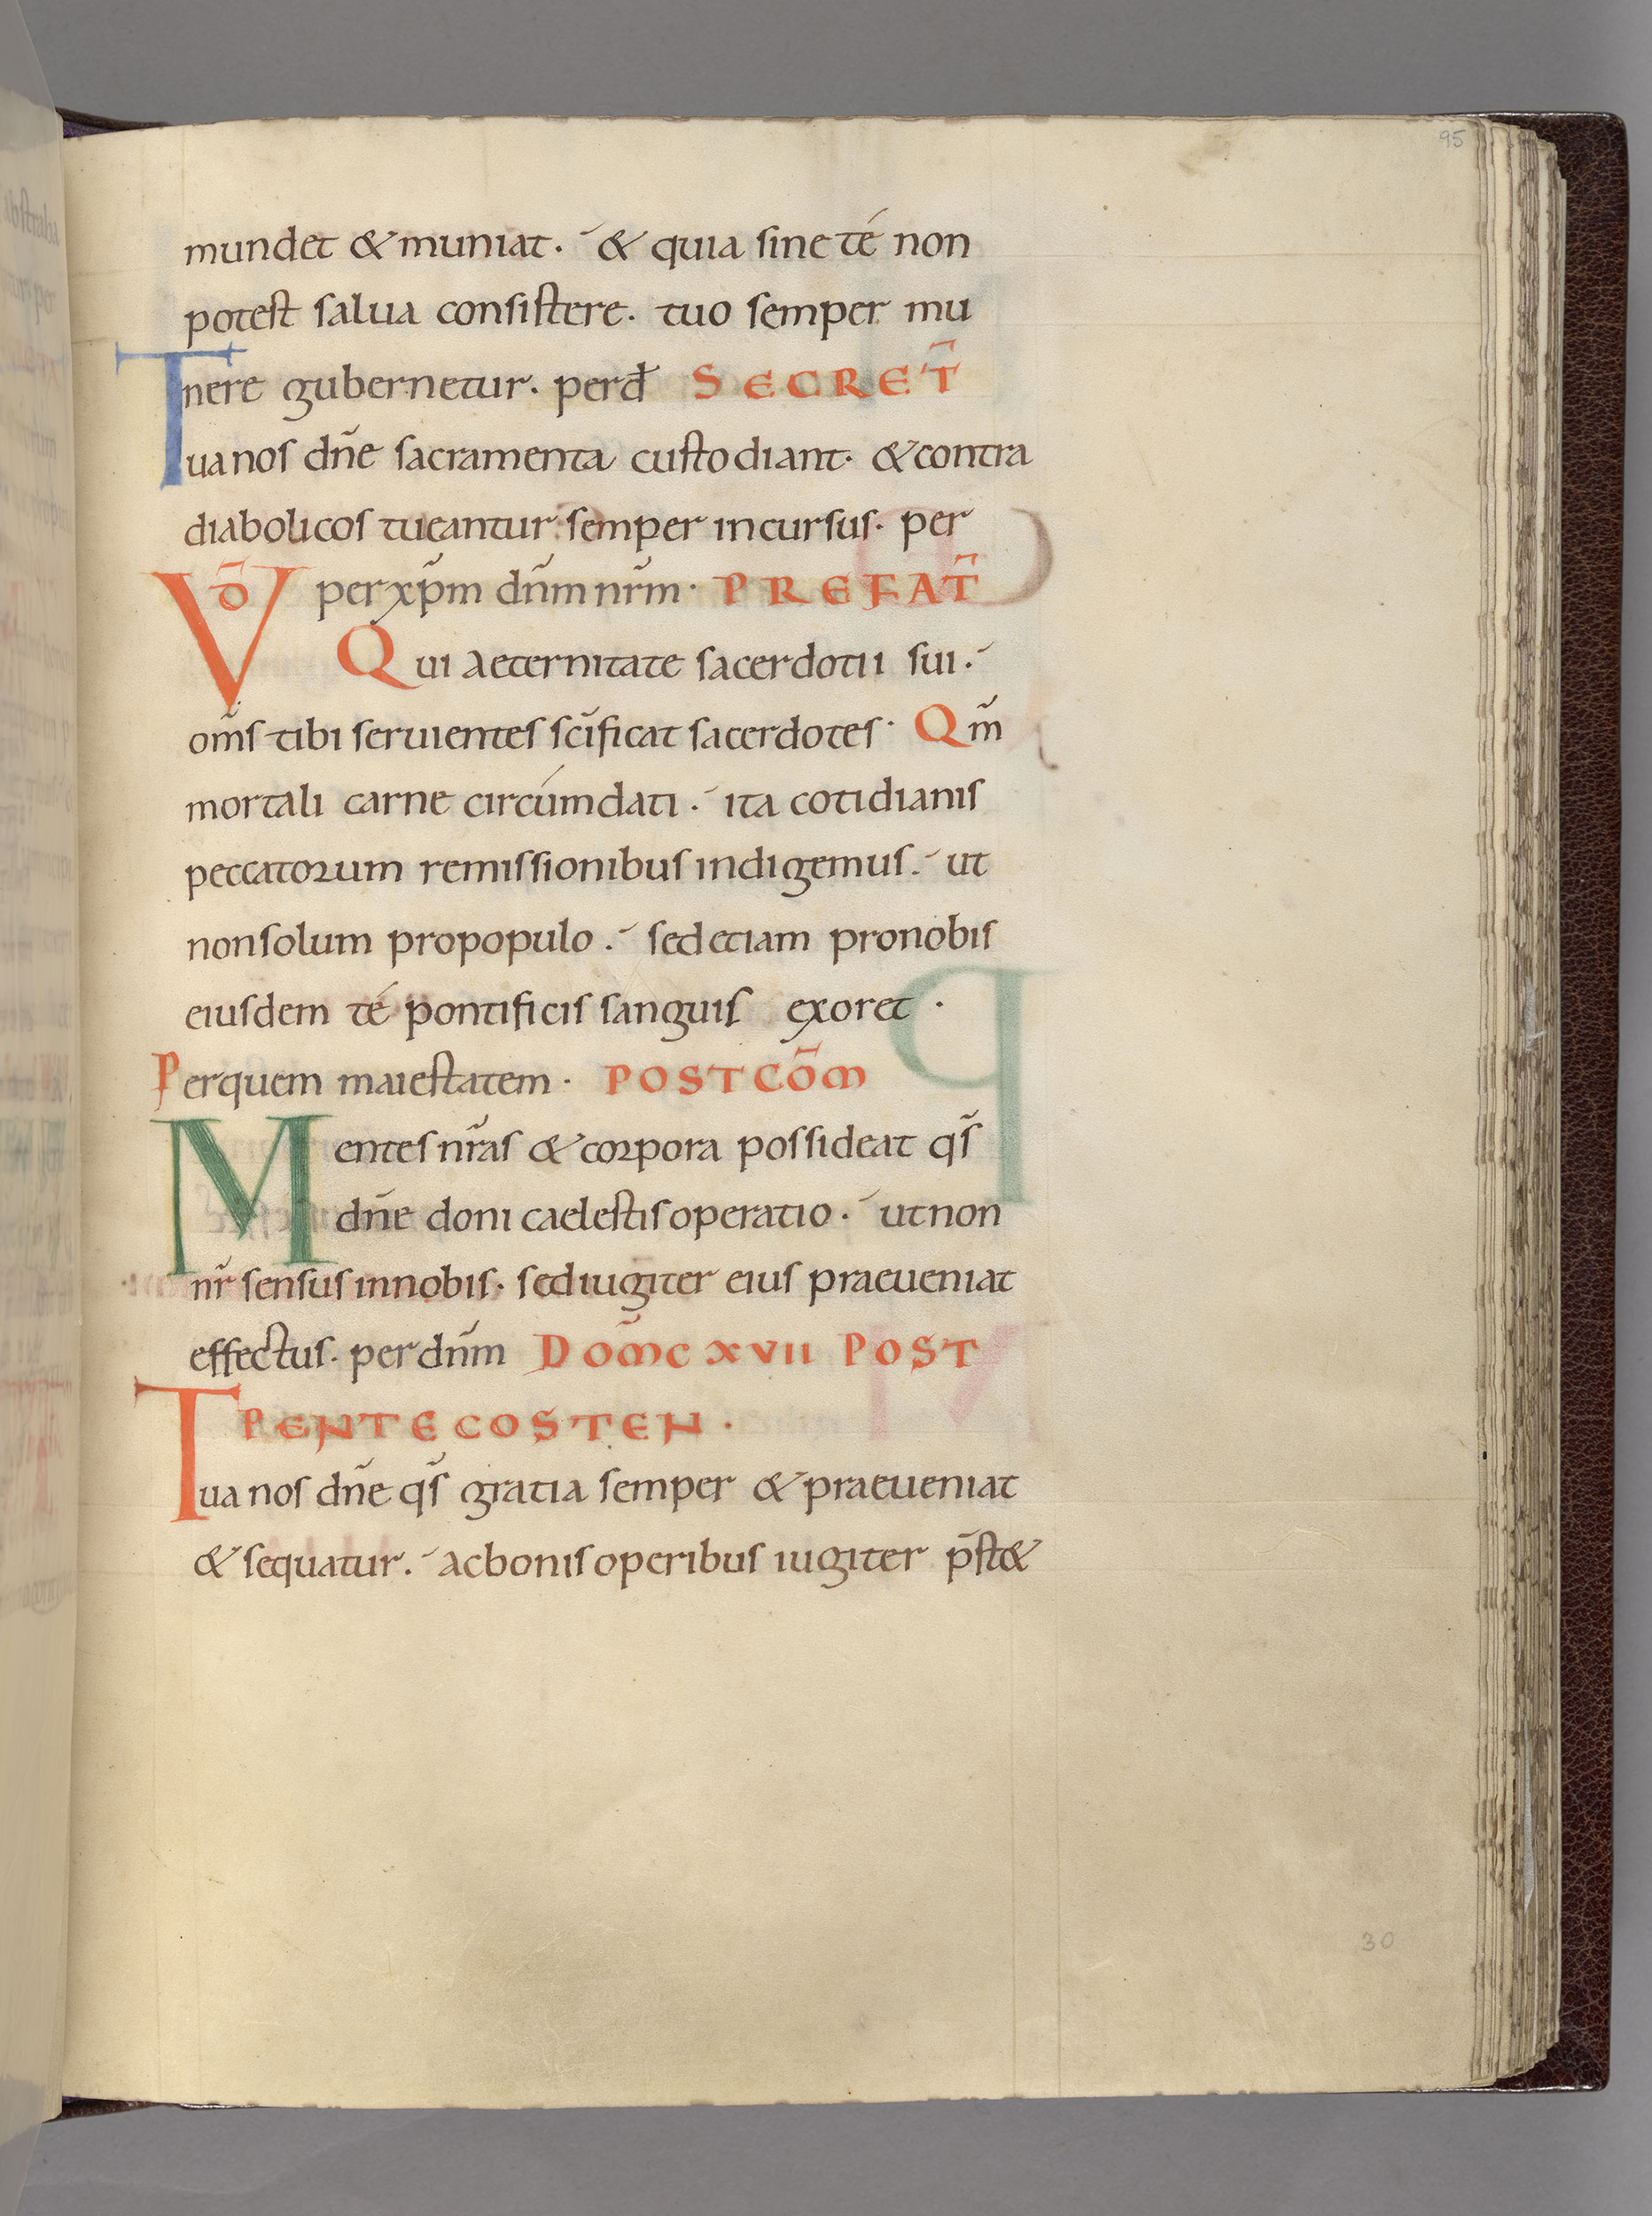 95
mundet & muniat. & quia sine té non
potest salua consistere. tuo semper mu
nere gubernetur. per đ SECRET̄
Tua nos dn̄e sacramenta custodiant. & contra
diabolicos tueantur semper incursus. per
VD̄ per xp̄m dn̄m nr̄m. PREFAT̄
Qui aeternitate sacerdotii sui.
om̄s tibi seruientes scīficat sacerdotes. Qm̄
mortali carne circúmdati. ita cotidianis
peccatorum remissionibus indigemus. ut
non solum pro populo. sed etiam pro nobis
eiusdem té pontificis sanguis exoret.
Per quem maiestatem. POST COM̄
Mentes nr̄as & corpora possideat qs̄
dn̄e doni caelestis operatio. ut non
nr̄ sensus in nobis. sed iugiter eius praeueniat
effectus. per dn̄m DOM̄C XVII POST
PENTECOSTEN.
Tua nos dn̄e qs̄ gratia semper & praeueniat
& sequatur. ac bonis operibus iugiter p̄st&
30